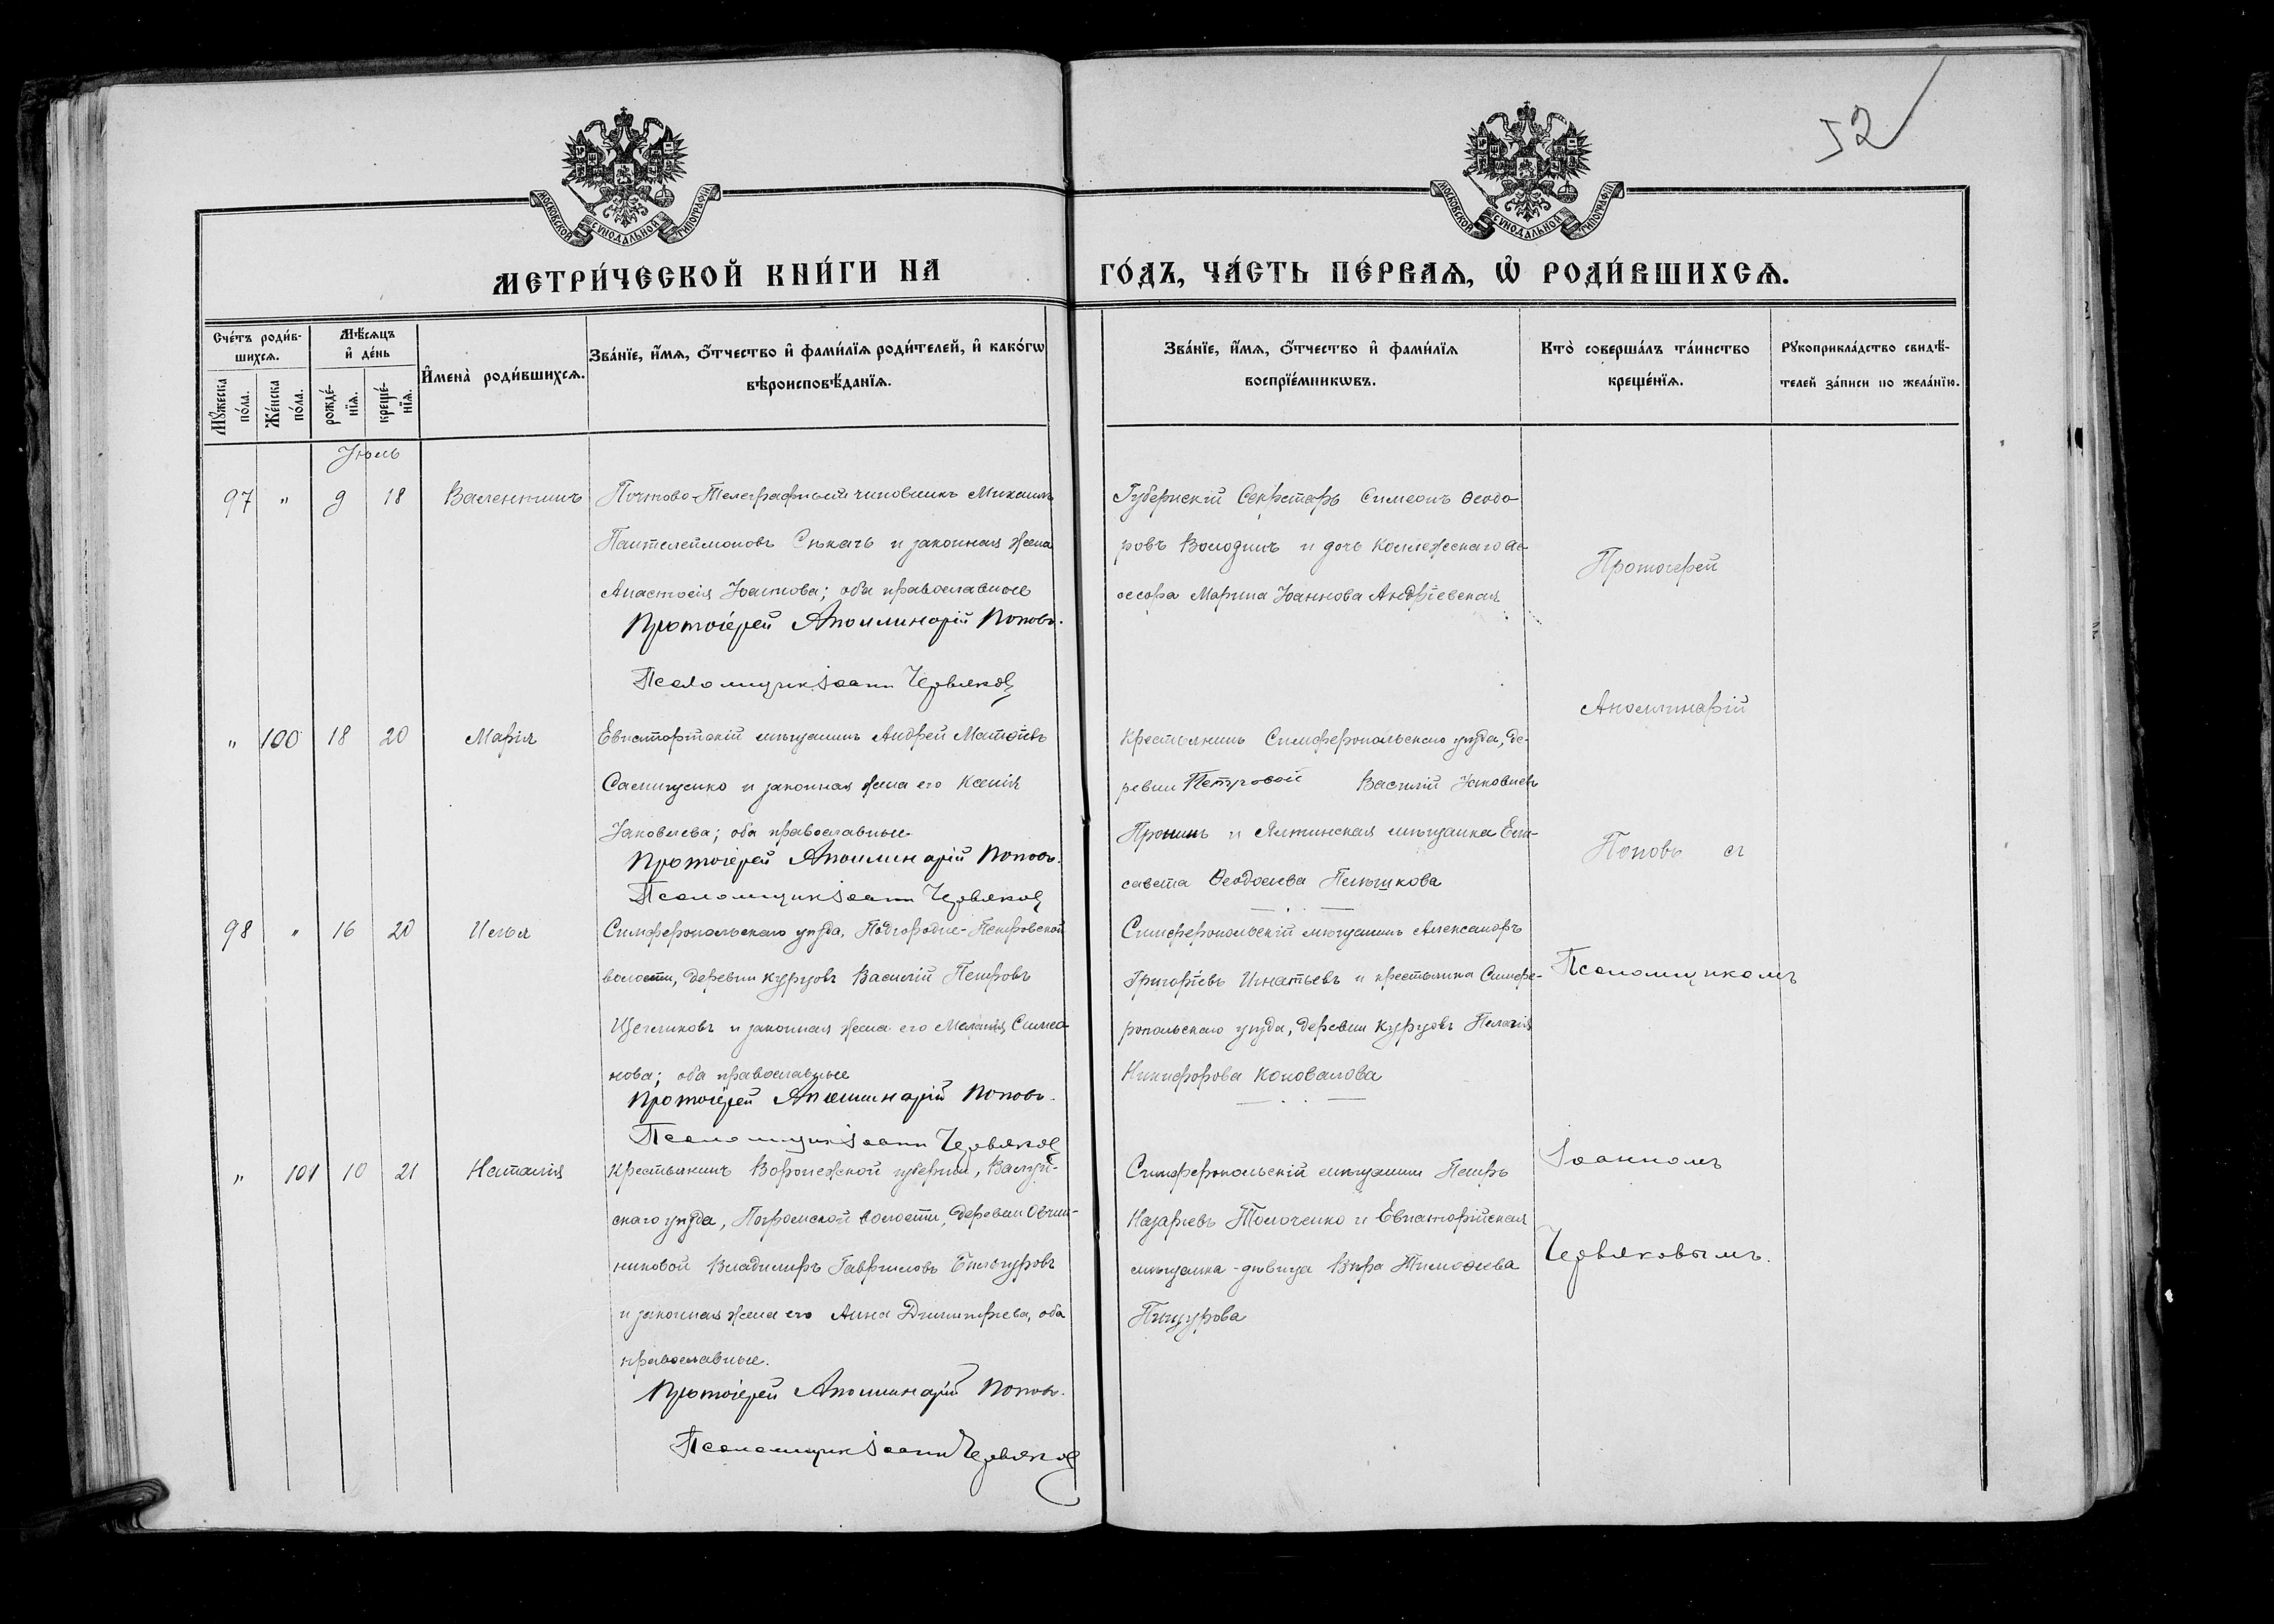 52
МОСКОВСКОЙ СУНОДАЛЬНОЙ ТИПОГРАФІИ
МОСКОВСКОЙ СУНОДАЛЬНОЙ ТИПОГРАФІИ
МЕТРИ́ЧЕСКОЙ КНИ́ГИ НА
ГО́ДЪ, ЧА́СТЬ ПЕ́РВАѦ, Ѽ РОДИ́ВШИХСѦ.
Сче́тъ роди́в-
шихсѧ.
Мꙋ́жеска по́ла.
Же́нска по́ла.
Мѣ́сѧцъ
и҆ де́нь
рожде́-
нїѧ.
креще́-
нїѧ.
И҆мена̀ роди́вшихсѧ.
Зва́нїе, и҆́мѧ, ѻ҆́тчество и҆ фами́лїѧ роди́телей, и҆ како́гѡ
вѣроисповѣ́данїѧ.
Зва́нїе, и҆́мѧ, ѻ҆́тчество и҆ фами́лїѧ
воспрїе́мникѡвъ.
Кто̀ соверша́лъ та́инство
креще́нїѧ.
Рꙋкоприкла́дство свидѣ́-
телей за́писи по жела́нїю.
Іюль
97 " 9 18 Валентинъ
Почтово-Телеграфный чиновникъ Михаилъ
Пантелеймоновъ Сѣкачъ и законная жена
Анастасія Іоаннова; оба православные
Протоіерей Аполлинарій Поповъ.
Псаломщик Іоанн Червяков
Губернскій Секретарь Симеонъ Ѳеодо-
ровъ Володинъ и дочь Коллежскаго Ас-
сесора Марина Іоаннова Андріевская
" 100 18 20 Марія
Евпаторійскій мѣщанинъ Андрей Матѳіевъ
Самищенко и законная жена его Ксенія
Іаковлева; оба православные
Протоіерей Аполлинарій Поповъ.
Псаломщик Іоанн Червяков
Крестьянинъ Симферопольскаго уѣзда, де-
ревни Петровой Василій Іаковлевъ
Пронинъ и Ялтинская мѣщанка Ели-
савета Ѳеодосіева Пѣнышкова
98 " 16 20 Илья
Симферопольскаго уѣзда, Подгородне-Петровской
волости, деревни Курцовъ Василій Петровъ
Щегликовъ и законная жена его Меланія Симео-
нова; оба православные
Протоіерей Аполлинарій Поповъ.
Псаломщик Іоанн Червяков
Симферопольскій мѣщанинъ Александръ
Григоріевъ Игнатьевъ и крестьянка Симфе-
ропольскаго уѣзда, деревни Курцовъ Пелагія
Никифорова Коновалова
" 101 10 21 Наталія
Крестьянинъ Воронежской губерніи, Валуй-
скаго уѣзда, Погромской волости, деревни Овчин-
никовой Владимиръ Гавриловъ Бѣлогуровъ
и законная жена его Анна Димитріева, оба
православные.
Протоіерей Аполлинарій Поповъ.
Псаломщик Іоанн Червяков
Симферопольскій мѣщанинъ Петръ
Назаріевъ Толоченко и Евпаторійская
мѣщанка-дѣвица Вѣра Тимоѳеева
Пищурова
Протоіерей
Аполлинарій
Поповъ съ
Псаломщикомъ
Іоанномъ
Червяковымъ.